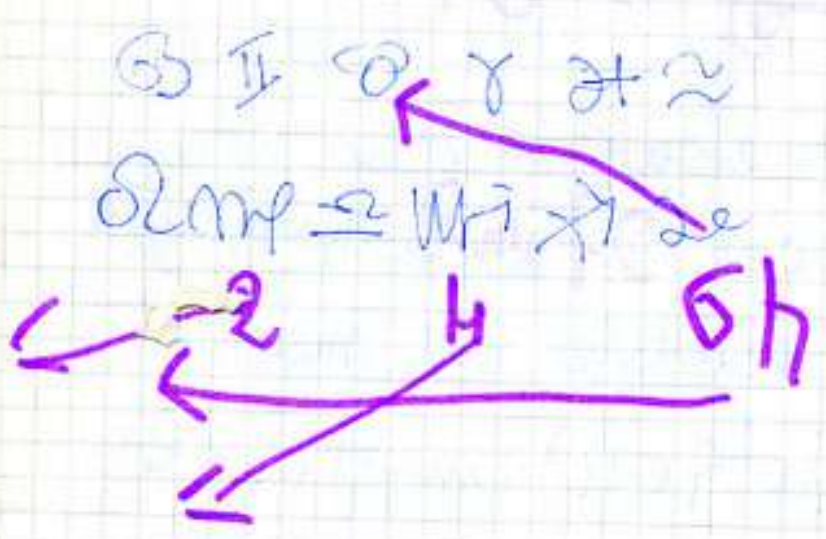 ♋ ♊ ♉ ♈ ♓ ♒
♌ ♍ ♎ ♏ ♐ ♑
2 4 6h